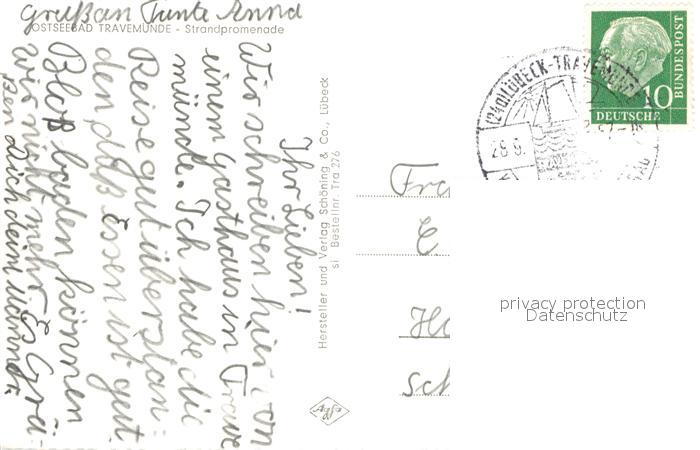 Gruß an Tante Anna
OSTSEEBAD TRAVEMÜNDE - Strandpromenade
Ihr Lieben!
Wir schreiben hier von
einem Gasthaus in Trave
münde. Ich habe die
Reise gut überstan:
den, das Essen ist gut
Bloß baden können
wir nicht mehr. Es Grü-
ßen Dich dein Mann
Hersteller und Verlag Schöning & Co., Lübeck
si Bestellnr. Tra 276
Agfa
(24a) LÜBECK-TRAVEMÜNDE
28.6.
10
DEUTSCHE
BUNDESPOST
Fra
E
Ha
Sch
privacy protection
Datenschutz